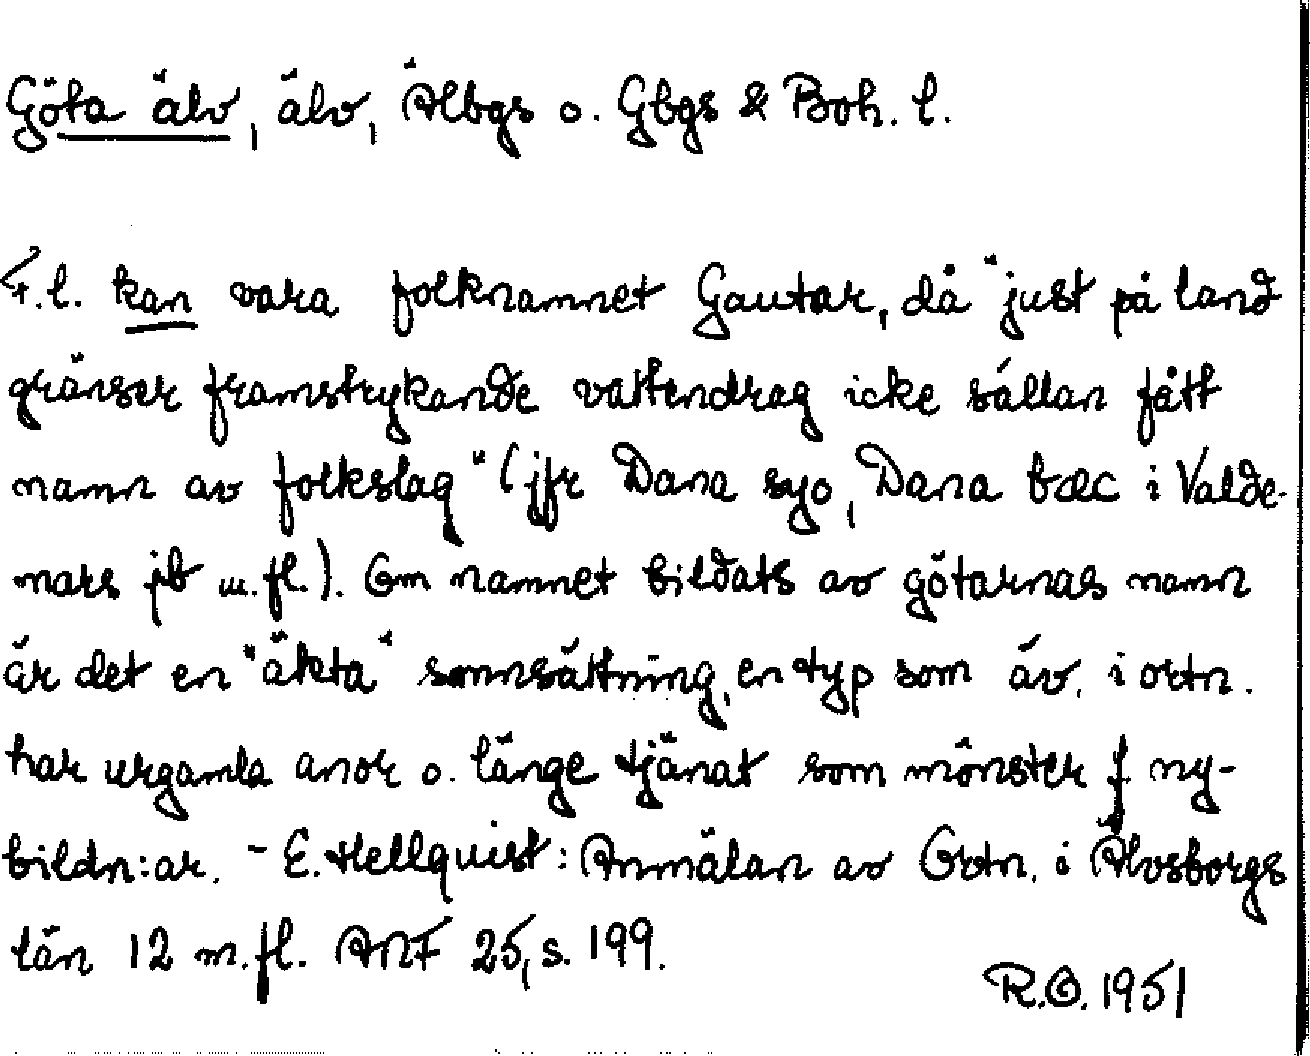 Göta älv, älv, Älbgs o. Gbgs & Boh. l.
F.l. kan vara folknamnet Gautar, då "just på land
gränser framstrykande vattendrag icke sällan fått
namn av folkslag" (jfr Dana syo, Dana bæc i Valde-
mars jb m.fl.). Om namnet bildats av götarnas namn
är det en "äkta" smnsättning, en typ som äv. i ortn.
har urgamla anor o. länge tjänat som mönster f ny-
bildn:ar. - E. Hellquist: Anmälan av Ortn. i Älvsborgs
län 12 m.fl. ANF 25, s. 199.
R.O. 1951